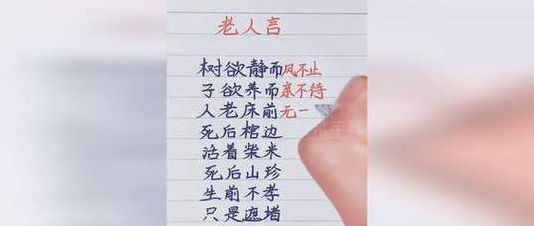 老人言
树欲静而风不止
子欲养而亲不待
人老床前无一
死后棺边
活着柴米
死后山珍
生前不孝
只是遮墙